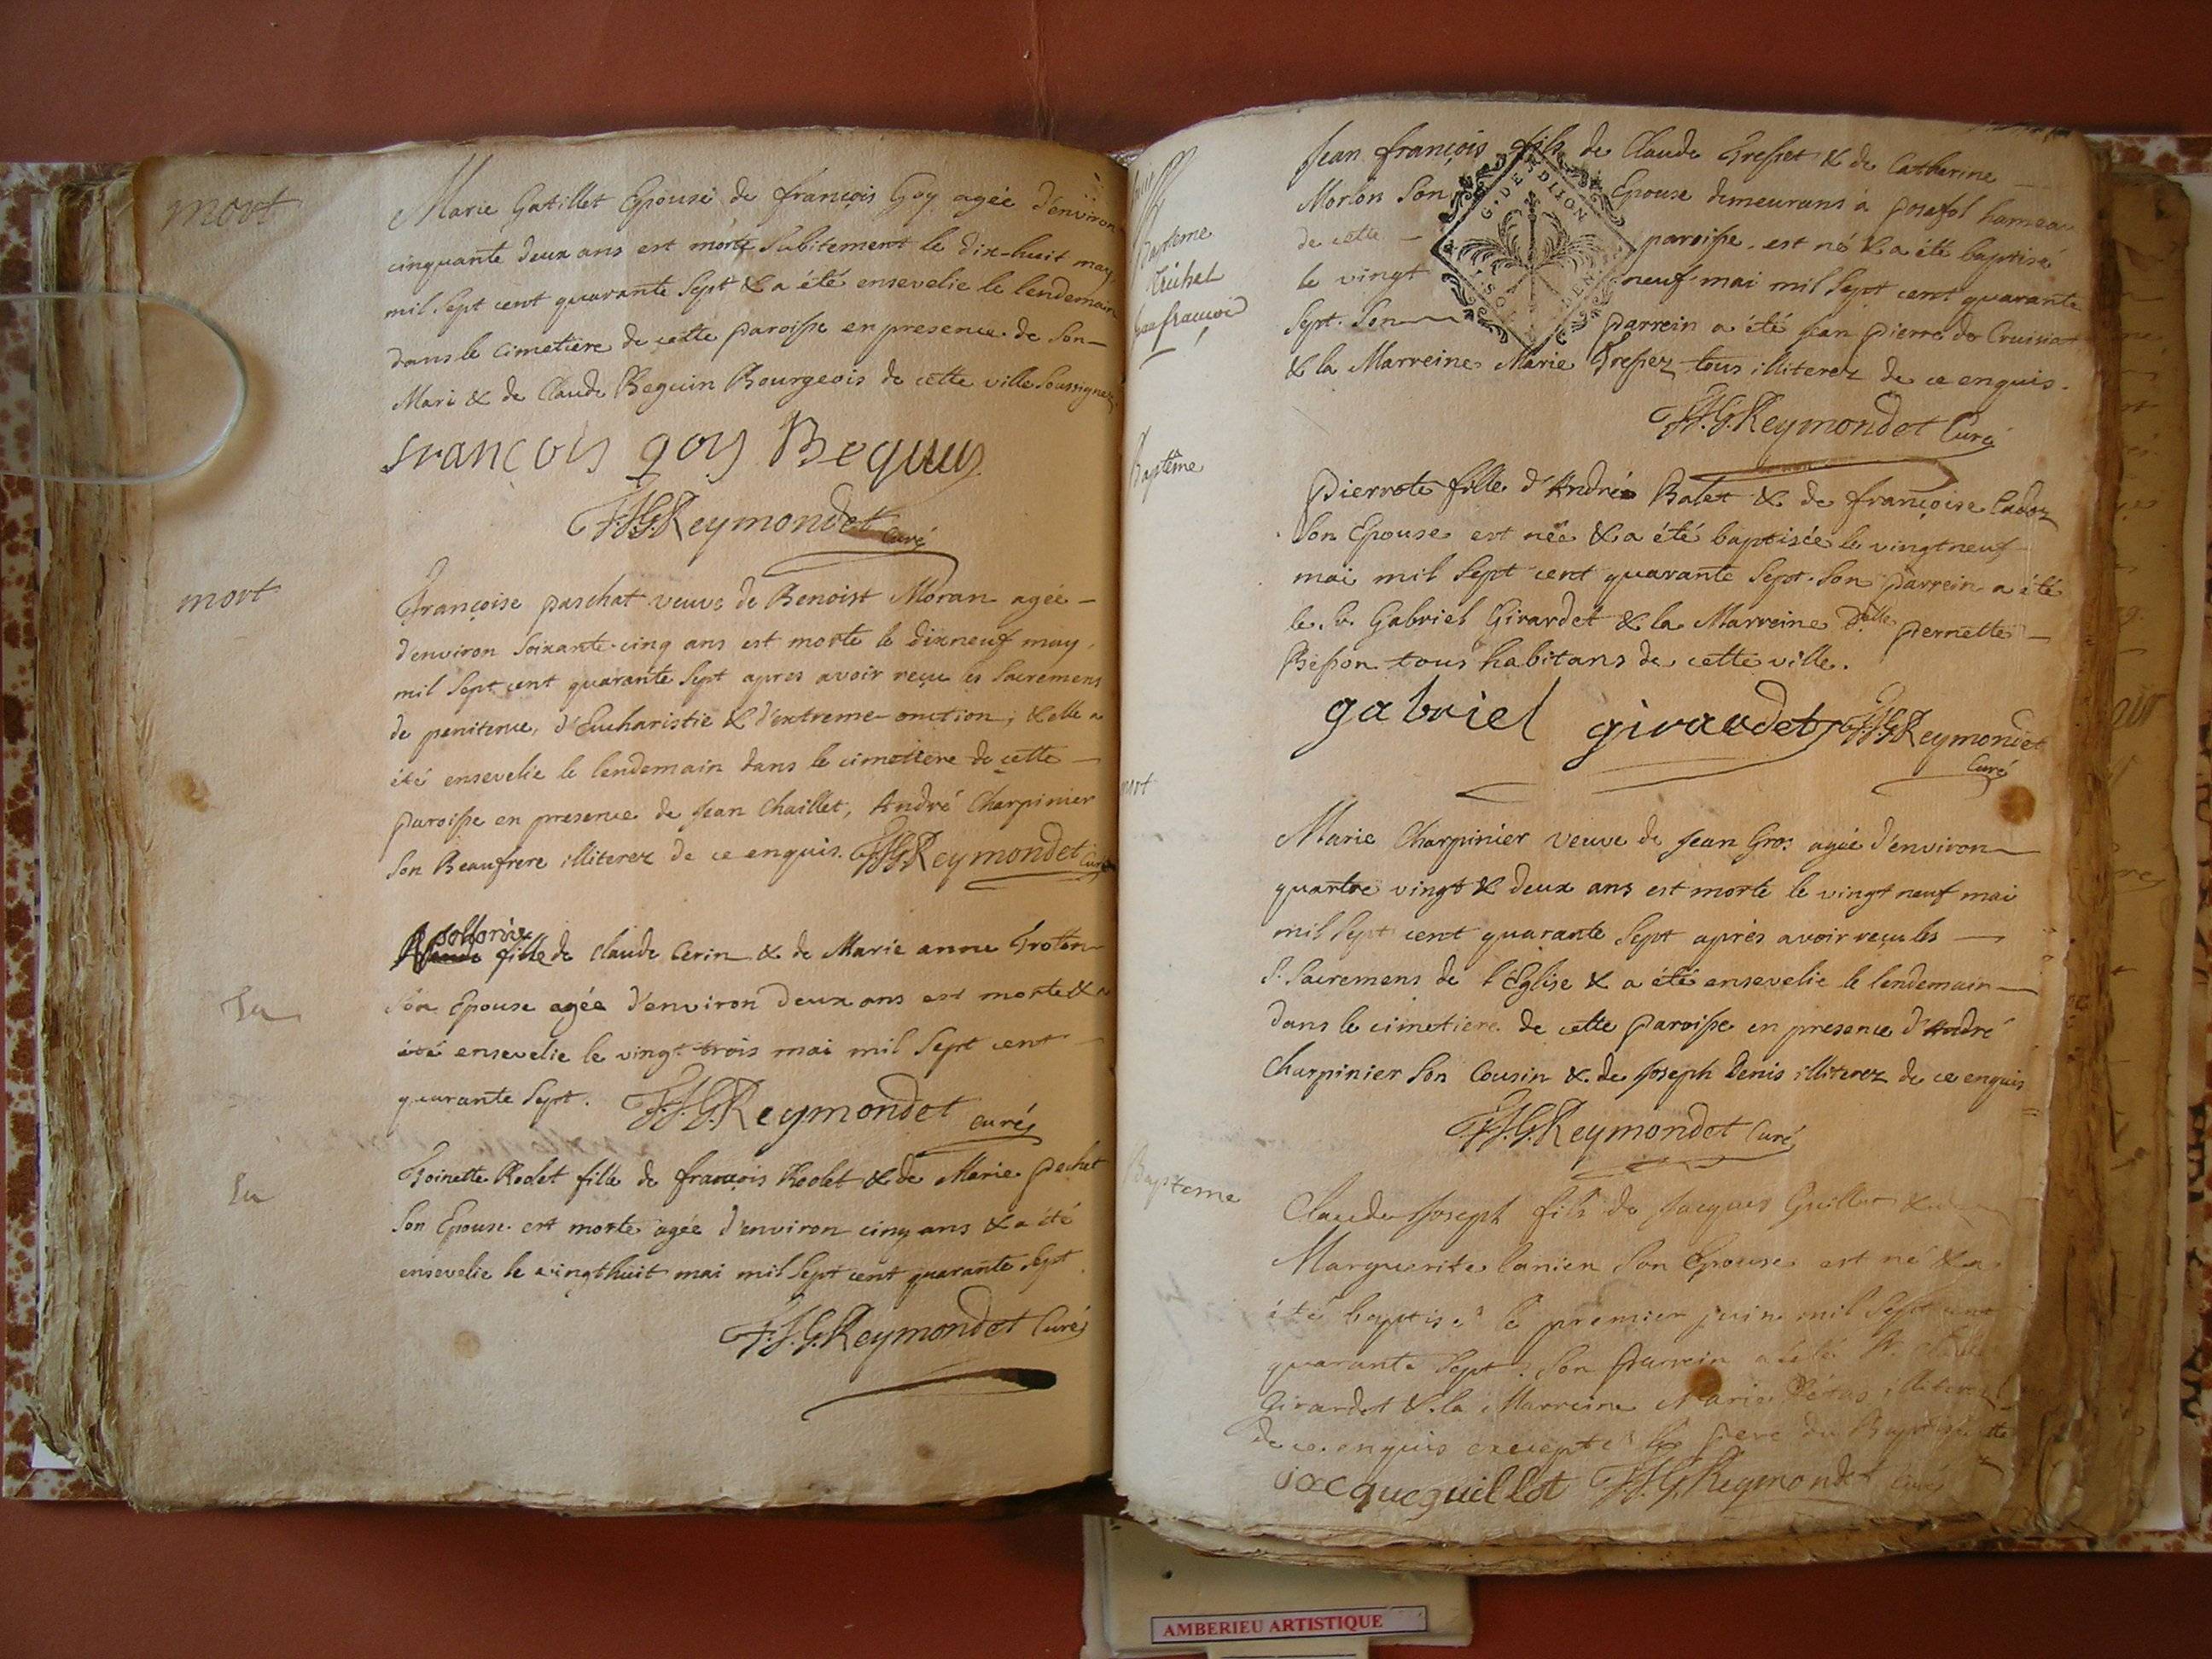 mort
Marie Gatillet Epouse de françois Goy agée d'environ
cinquante deux ans est morte Subitement le dix-huit may
mil Sept cent quarante Sept & a été ensevelie le lendemain
dans le cimetiere de cette paroisse en presence de Son
Mari & de Claude Beguin Bourgeois de cette ville Soussignez
françois goy Beguin
F.J.G. Reymondet Curé
mort
Françoise paschat veuve de Benoist Moran agée
d'environ Soixante-cinq ans est morte le dixneuf may
mil Sept cent quarante Sept apres avoir reçu les Sacremens
de penitence, d'Eucharistie & d'extreme-onction, & elle a
été ensevelie le lendemain dans le cimetiere de cette
paroisse en presence de Jean Chaillet, André Charpinier
Son Beaufrere illiterez de ce enquis. F.J.G. Reymondet Curé
pollonie
fille de Claude Cerin & de Marie anne
Son Epouse agée d'environ deux ans est morte & a
été ensevelie le vingt-trois mai mil Sept cent
quarante Sept. F.J.G. Reymondet curé
Toinette Rodet fille de françois Rodet & de Marie pechet
Son Epouse est morte agée d'environ cinq ans & a été
ensevelie le vingthuit mai mil Sept cent quarante Sept
F.J.G. Reymondet Curé
Jean françois fils de Claude Tresset & de Catherine
Morlon Son Epouse demeurans à posafol hameau
de cette paroisse est né & a été baptisé
le vingt neuf mai mil Sept cent quarante
Sept. Son parrein a été Jean pierre de Cruisiat
& la Marreine Marie Tressez tous illiterez de ce enquis.
G. DE DIJON
F.J.G. Reymondet Curé
Baptême
pierrote fille d'André Balet & de françoise
Son Epouse est née & a été baptisée le vingtneuf
mai mil Sept cent quarante Sept. Son parrein a été
le Sr. Gabriel Girardet & la Marreine Dlle pernette
Besson tous habitans de cette ville.
gabriel girardet F.J.G. Reymondet
Curé
mort
Marie Charpinier veuve de Jean Gros agée d'environ
quartre vingt & deux ans est morte le vingt neuf mai
mil Sept cent quarante Sept après avoir reçu les
S. Sacremens de l'Eglise & a été ensevelie le lendemain
dans le cimetiere de cette paroisse en presence d'André
Charpinier Son Cousin & de Joseph Denis illiterez de ce enquis
F.J.G. Reymondet Curé
Bapteme
Claude Joseph fils de Jacques Guillot &
Marguerite lanier Son Epouse est né & a
été baptisé le premier juin mil Sept cent
quarante Sept. Son parrein a été Sr. Claude
Girardet & la Marreine Marie illiterez
de ce enquis excepté le pere du Baptisé
jacque guillot F.J.G. Reymondet curé
AMBERIEU ARTISTIQUE